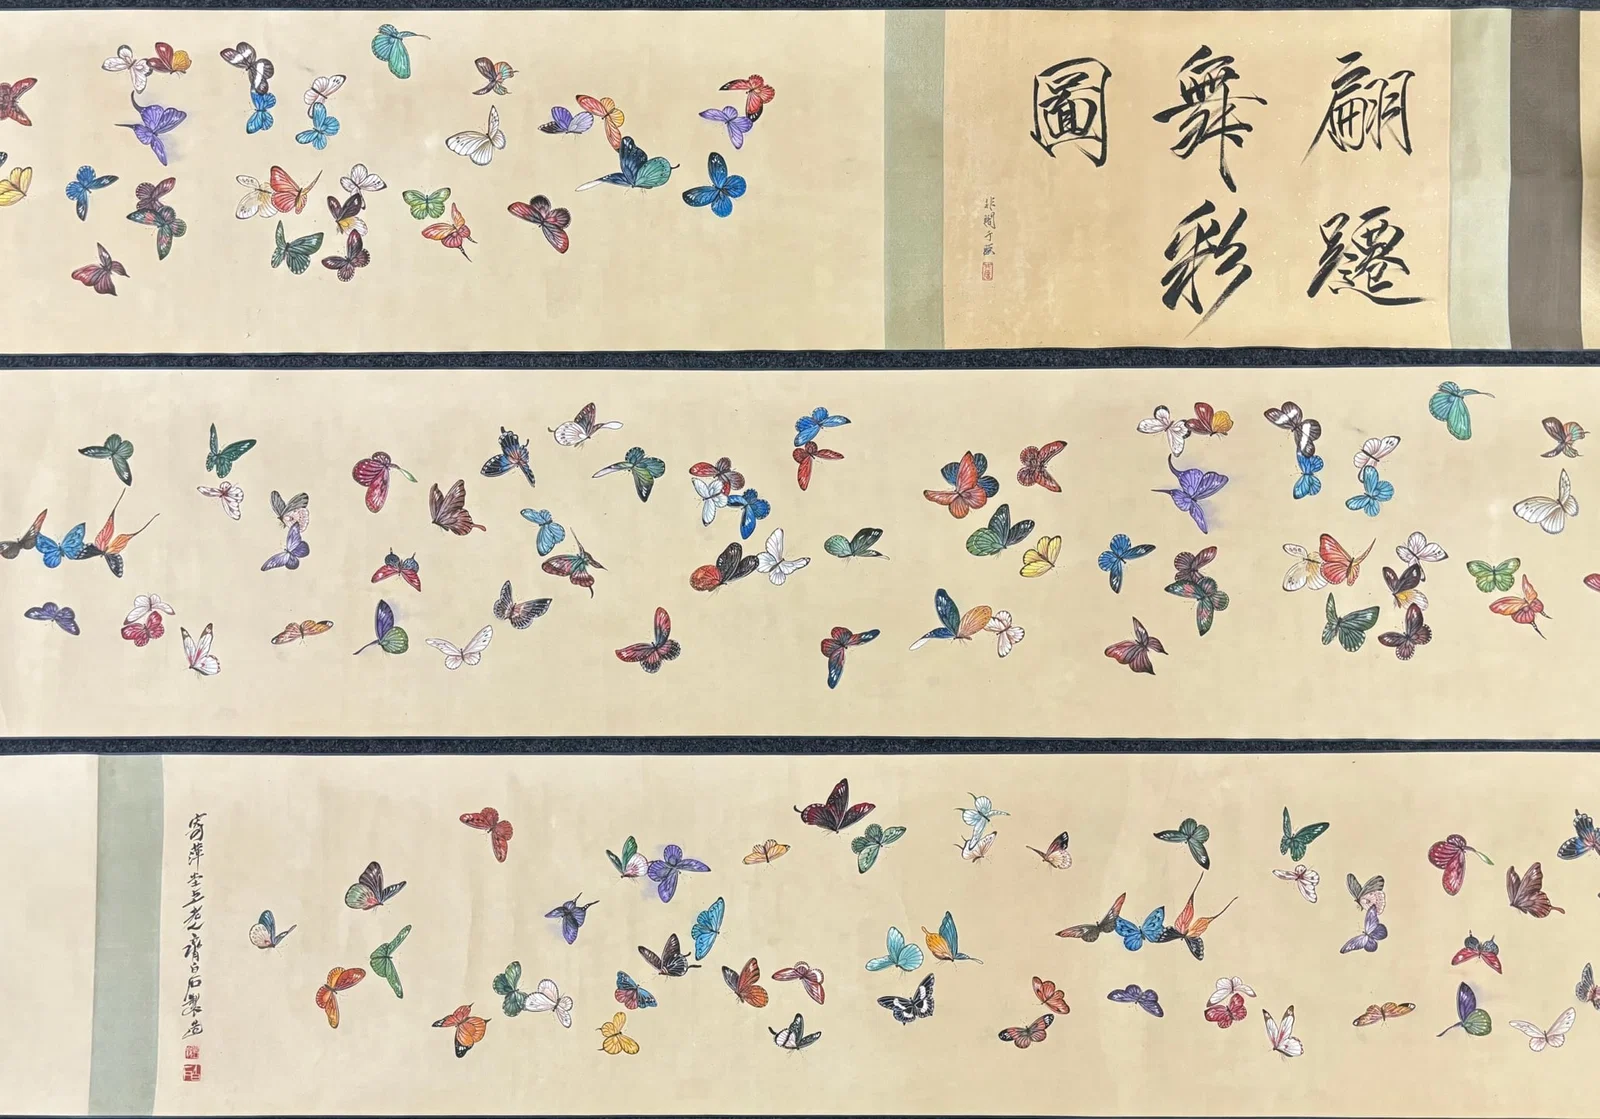 翩躚
舞彩
圖
非闇于照
寄萍堂上老人齊白石製造